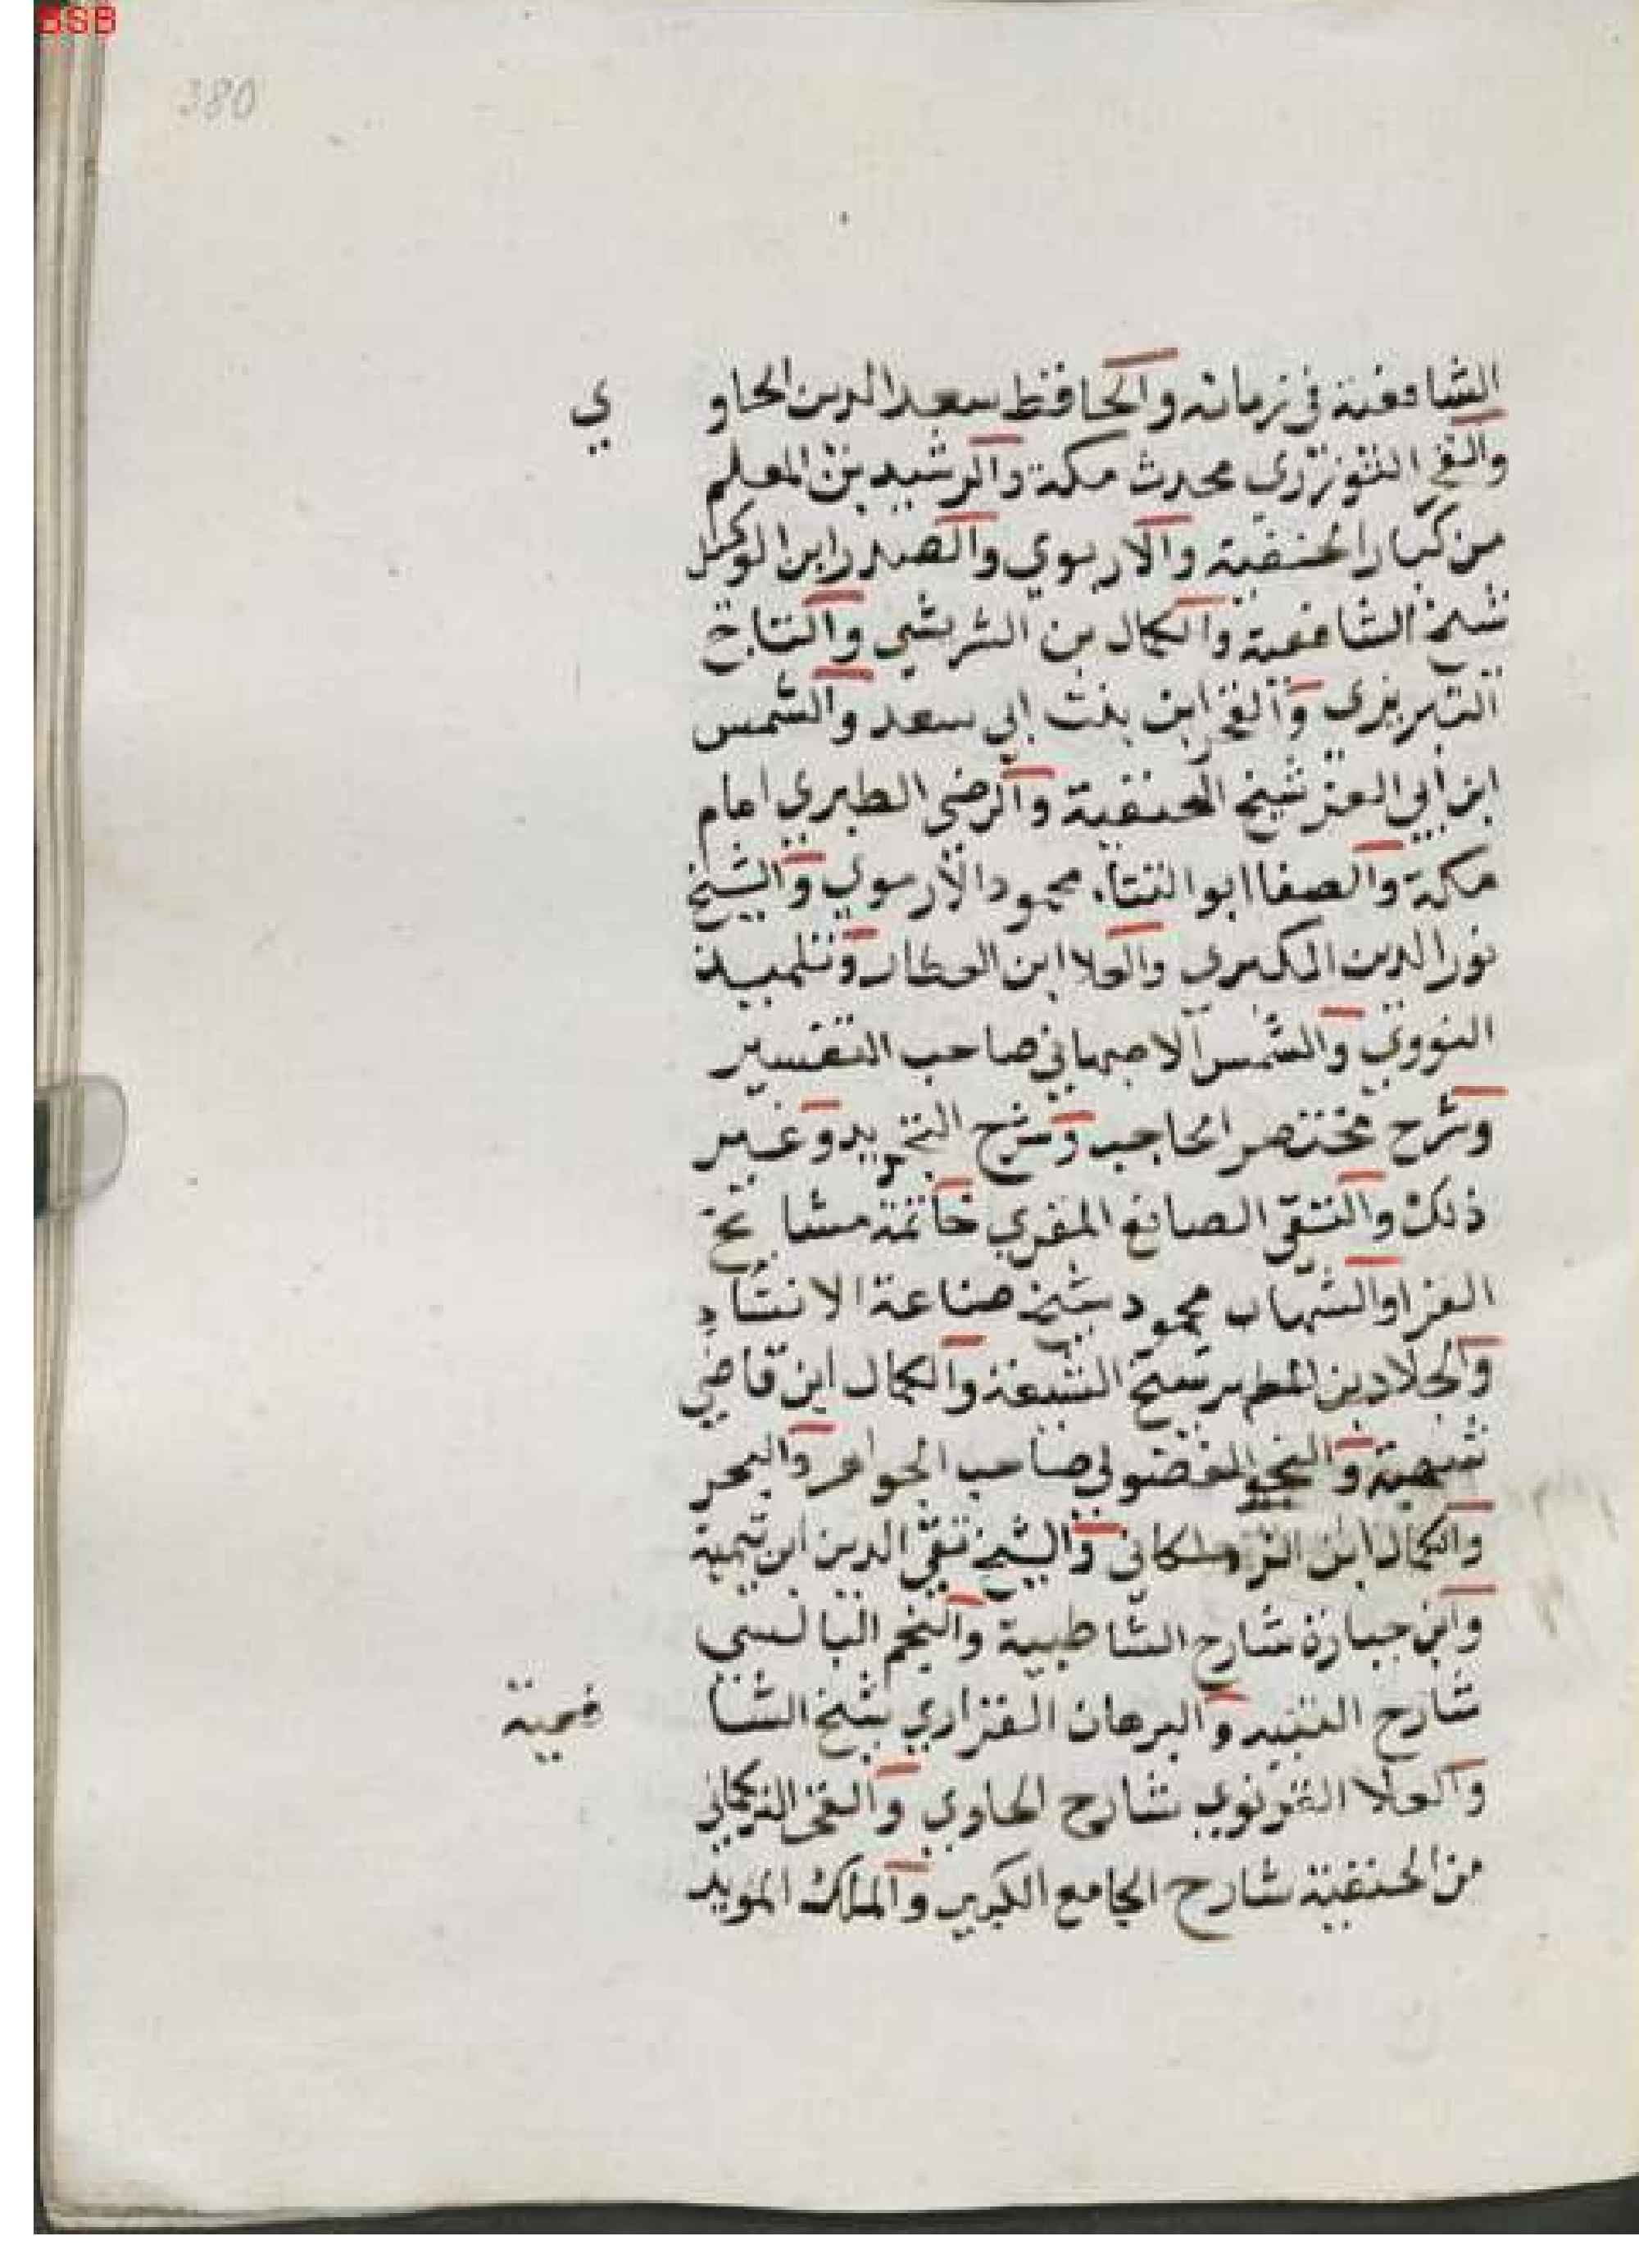 BSB
380
الشافعية في زمانه والحافظ سعد الدين الحاو ي
والفخر التوزري محدث مكة والرشيد بن المعلم
من كبار الحنفية والاربوي والصدر ابن الوكيل
شيخ الشافعية والكمال بن الشريشي والتاج
التبريزي والفخر ابن بنت ابي سعد والشمس
ابن ابي العز شيخ الحنفية والرضي الطبري امام
مكة والصفا ابو الثناء محمود الأرموي والشيخ
نور الدين البكري والعلا ابن العطار وتلميذ
النووي والشمس الاصبهاني صاحب التفسير
وشرح مختصر الحاجب وشرح التجريد وغير
ذلك والتقي الصايغ المقري خاتمة مشايخ
القرا والشهاب محمود شيخ صناعة الانشاء
والجلاد بن المطهر شيخ الشيعة والكمال ابن قاضي
شهبة والنجم القمولي صاحب الجواهر والبحر
والكمال ابن الزملكاني والشيخ تقي الدين ابن تيمية
وابن جبارة شارح الشاطبية والنجم البالسي
شارح التنبيه والبرهان الفزاري شيخ الشا فعية
والعلا القونوي شارح الحاوي والفخر التركماني
من الحنفية شارح الجامع الكبير والملك المويد